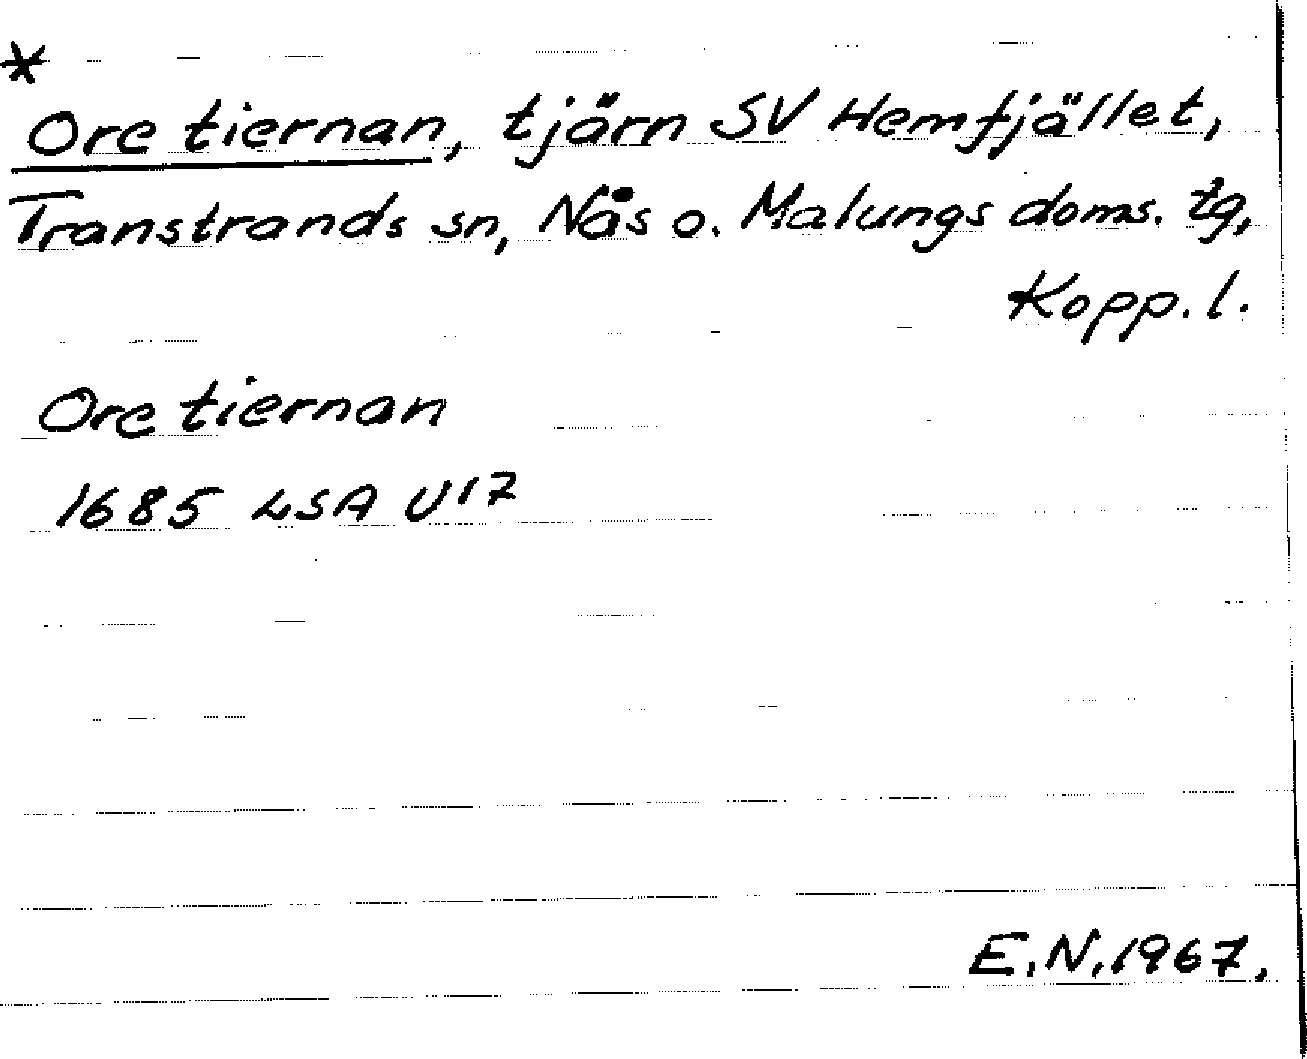 *
Ore tiernan, tjärn SV Hemfjället,
Transtrands sn, Nås o. Malungs doms. tg,
Kopp. l.
Ore tiernan
1685 LSA U17
E.N. 1967.